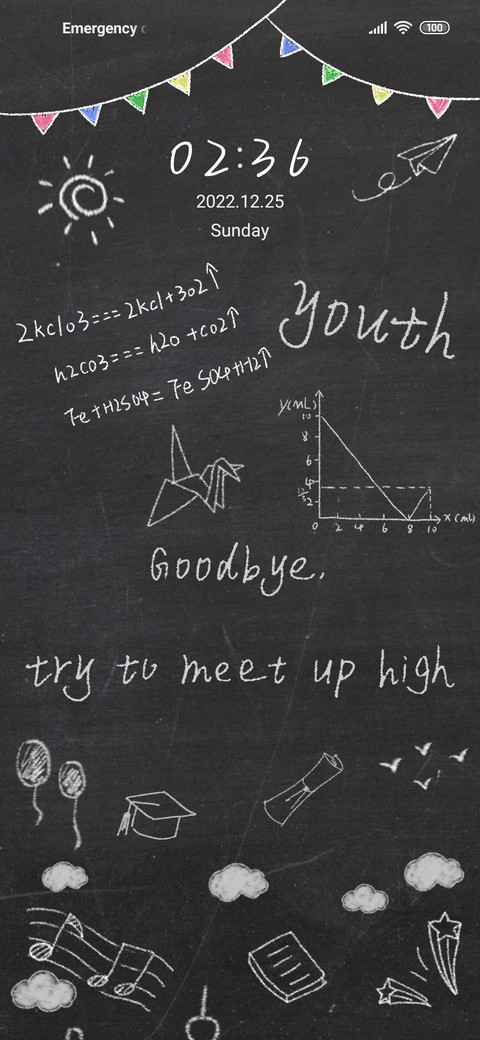 Emergency
100
02:36
2022.12.25
Sunday
2kclo3=== 2kcl+3o2↑
h2co3=== h2o +co2↑
Fe+H2SO4= Fe SO4+H2↑
youth
y(mL)
10
8
6
4
2
0 2 4 6 8 10 x (mL)
Goodbye.
try to meet up high